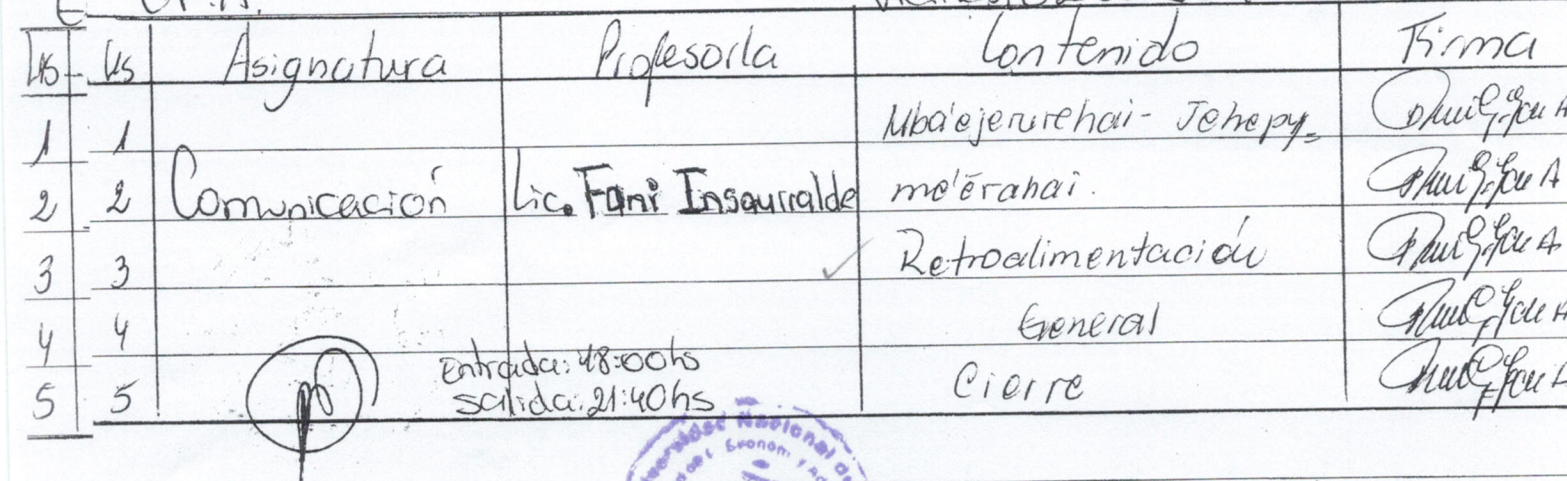 Hs Vs Asignatura Profesor/a Contenido Firma
1 1 Mba'ejerurehai - Jehepy-
2 2 Comunicación Lic. Fani Insaurralde me'ẽrahai.
3 3 Retroalimentación
4 4 General
entrada: 18:00hs
5 5 Cierre
salida: 21:40hs
Nacional de
Econom